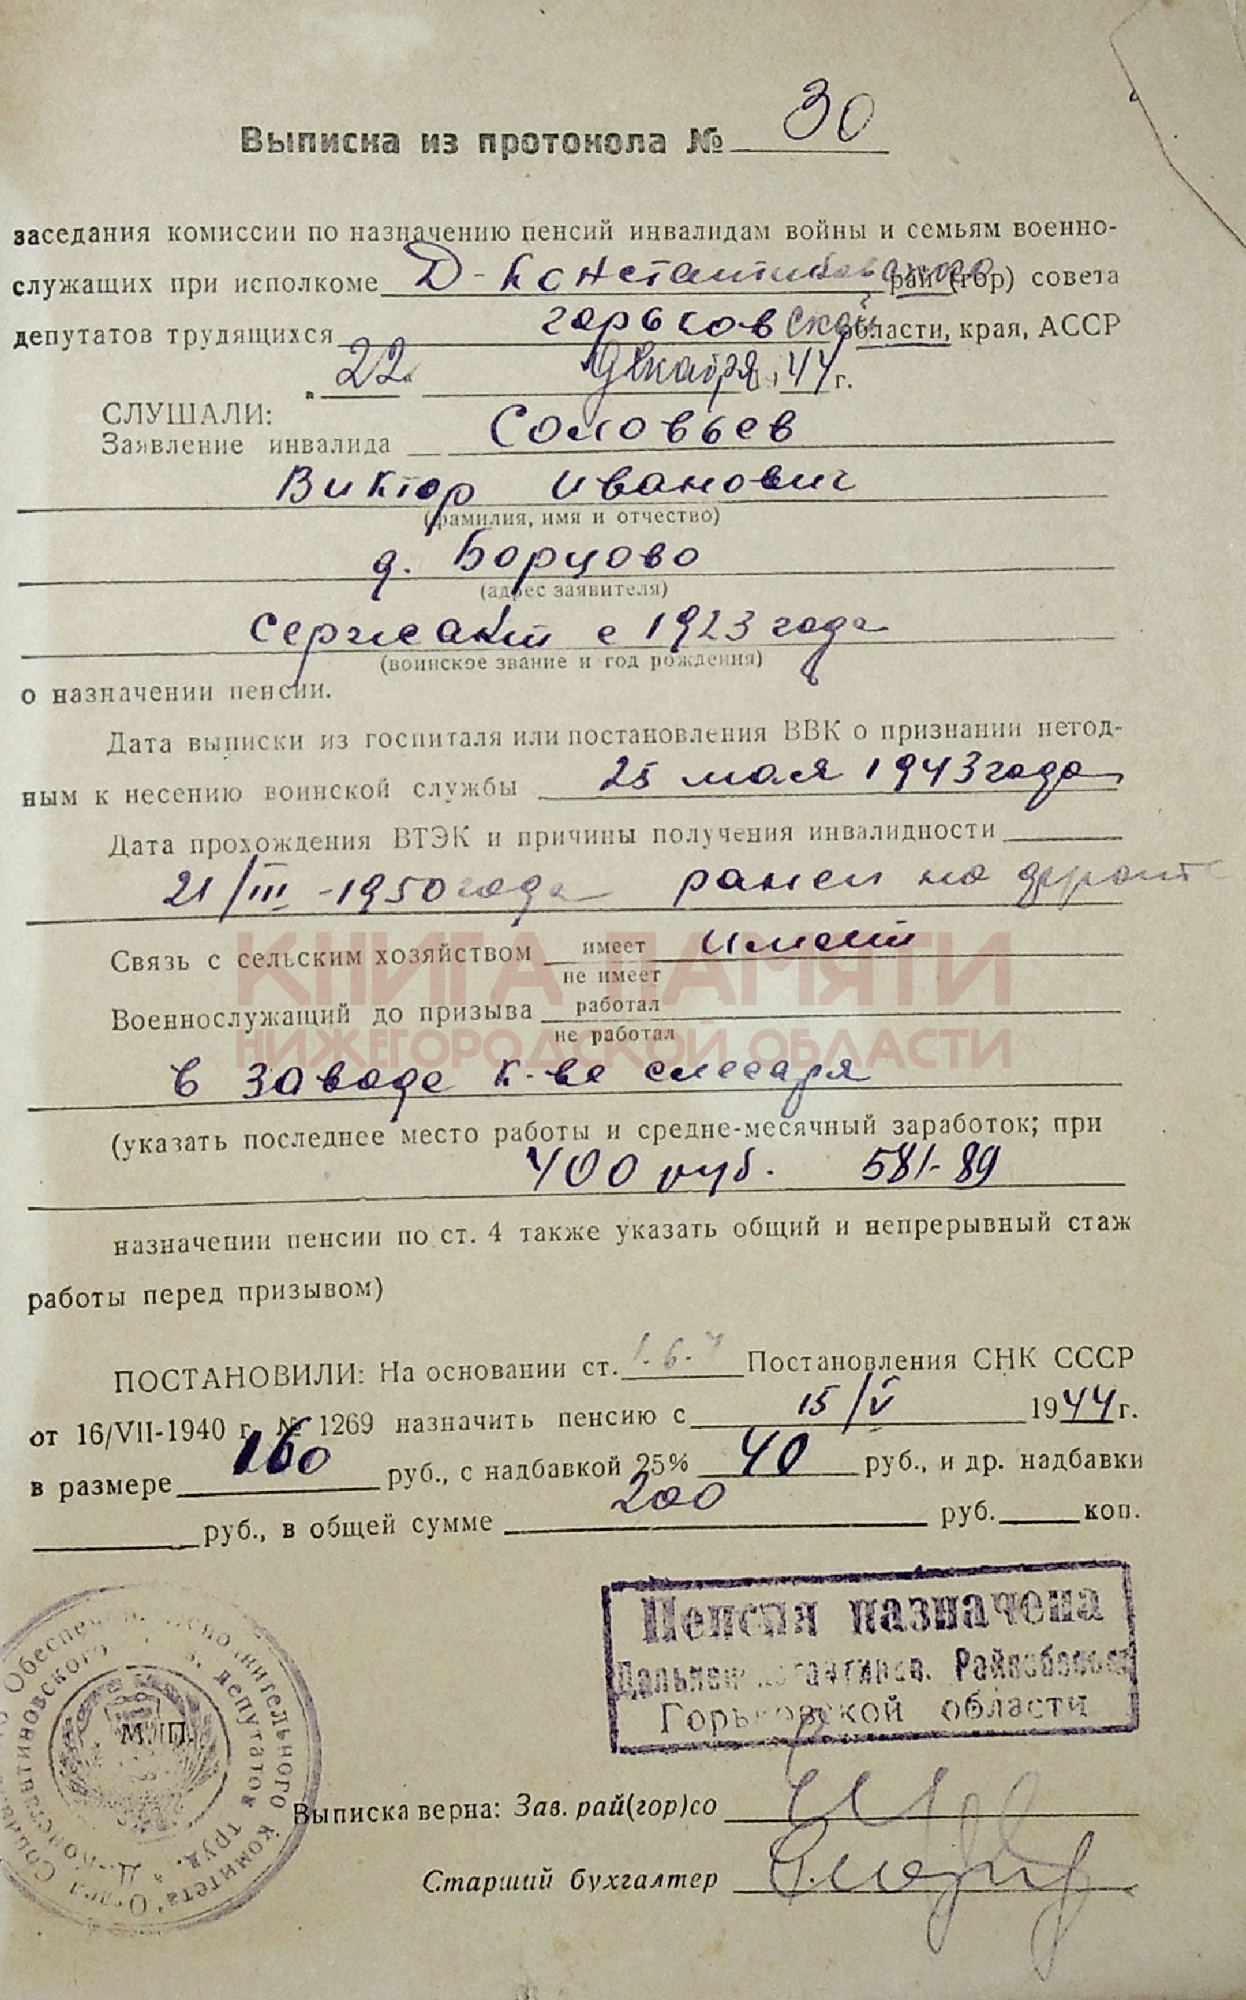 Выписка из протокола № 30
заседания комиссии по назначению пенсий инвалидам войны и семьям военно-
служащих при исполкоме Д-Константиновского рай (гор) совета
депутатов трудящихся горьковской области, края, АССР
„ 22 декабря 1944 г.
СЛУШАЛИ:
Заявление инвалида Соловьев
Виктор Иванович
(фамилия, имя и отчество)
д. Борцово
(адрес заявителя)
Сержант с 1923 года
(воинское звание и год рождения)
о назначении пенсии.
Дата выписки из госпиталя или постановления ВВК о признании негод-
ным к несению воинской службы 25 мая 1943 года
Дата прохождения ВТЭК и причины получения инвалидности
21/III-1950 года ранен на фронте
Связь с сельским хозяйством имеет имеет
не имеет
КНИГА ПАМЯТИ
Военнослужащий до призыва работал
не работал
НИЖЕГОРОДСКОЙ ОБЛАСТИ
в заводе к-ве слесаря
(указать последнее место работы и средне-месячный заработок; при
400 руб. 581-89
назначении пенсии по ст. 4 также указать общий и непрерывный стаж
работы перед призывом)
ПОСТАНОВИЛИ: На основании ст. 1.6.7 Постановления СНК СССР
от 16/VII-1940 г. № 1269 назначить пенсию с 15/V 1944 г.
в размере 160 руб., с надбавкой 25% 40 руб., и др. надбавки
руб., в общей сумме 200 руб. коп.
Пенсия назначена
Дальнеконстантинов. Райсобесом
Горьковской области
М. П.
Выписка верна: Зав. рай(гор)со
Старший бухгалтер